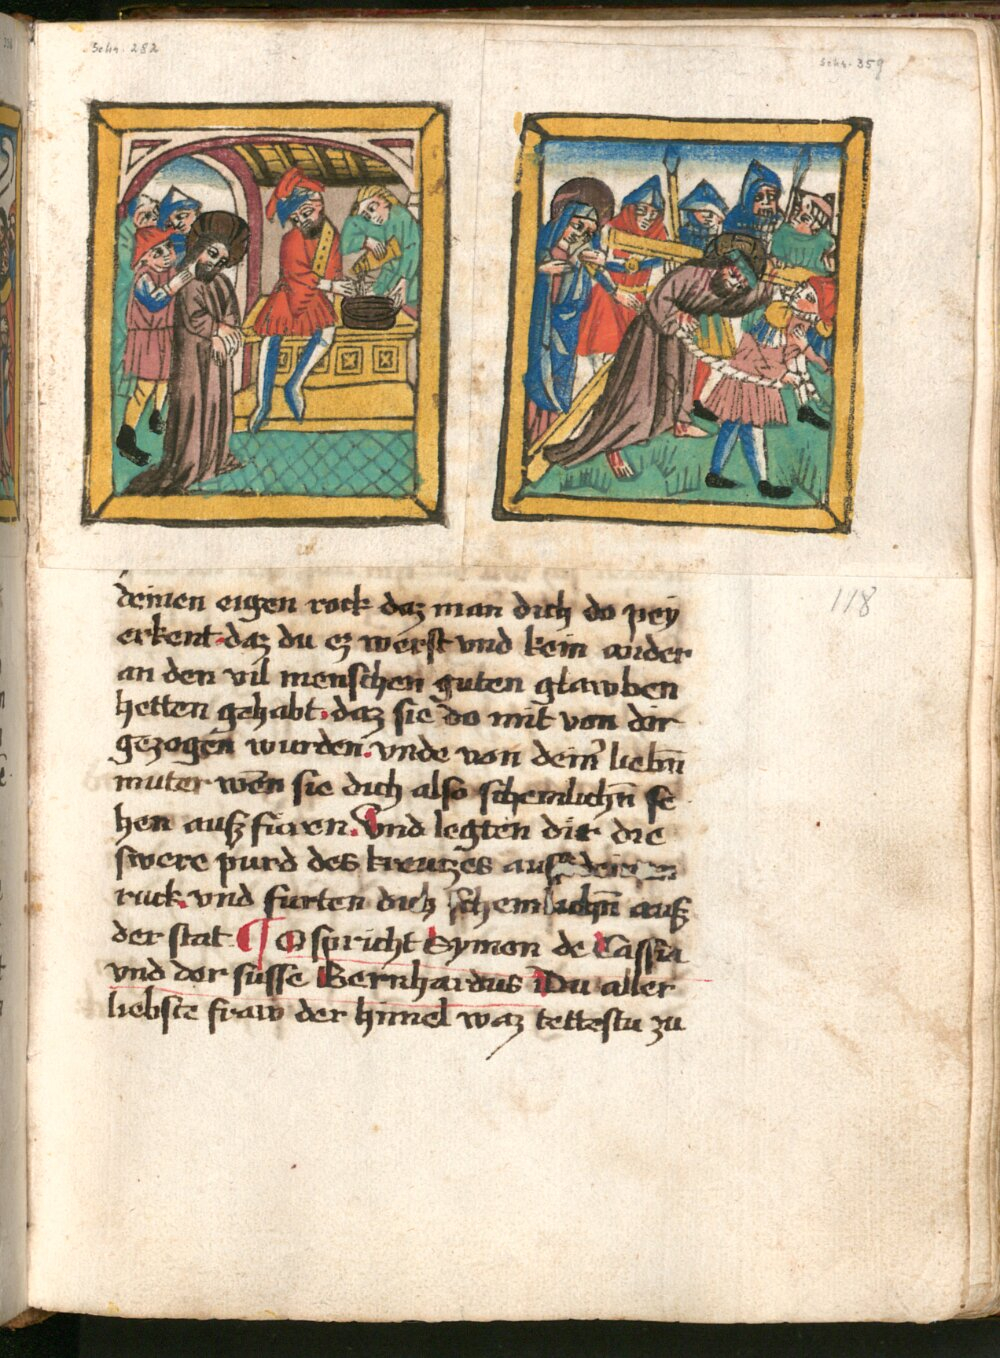 Schr. 282
Schr. 359
118
deinen eigen rock daz man dich do pey
erkent daz du ez werst vnd kein ander
an den vil menschen guten glawben
hetten gehabt. daz sie do mit von dir
gezogen wurden. vnde von deinˀ liebn̄
muter wen̄ sie dich also schemlichn̄ se
hen außfüren. Vnd legten dir die
swere purd des kreutzes auf den
ruck. vnd furten dich schemlichn̄ auß
der stat ¶ O spricht Symon de Cassia
vnd der süsse Bernhardus Du aller
liebste fraw der himel waz tettestu zu